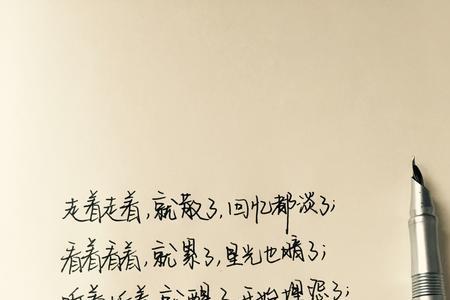 走着走着,就散了,回忆都淡了;
看着看着,就累了,星光也暗了;
听着听着,就醒了,开始埋怨了;